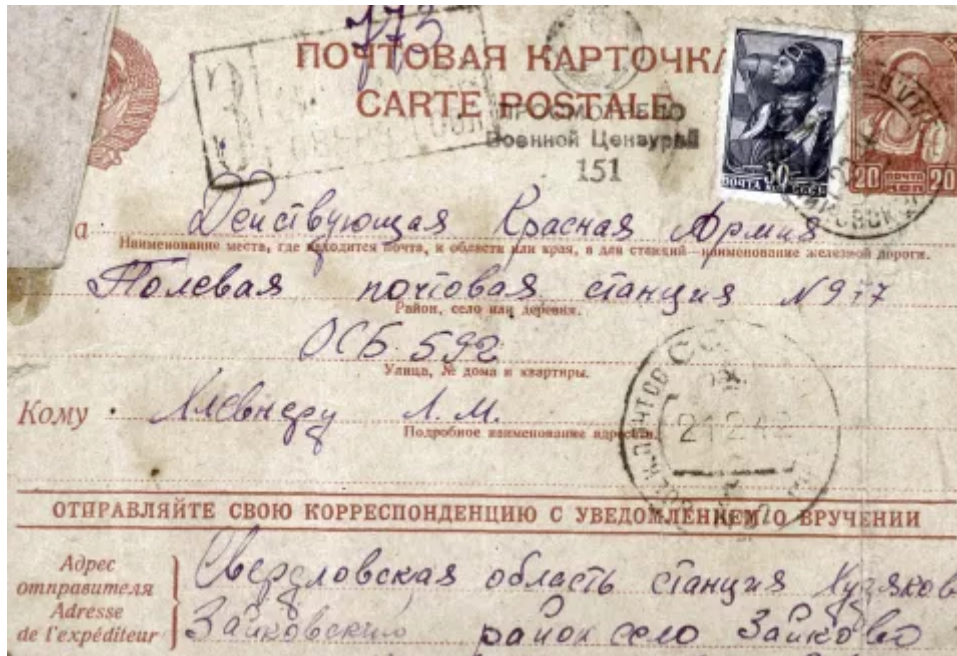 173
ПОЧТОВАЯ КАРТОЧКА
CARTE POSTALE
ПРОСМОТРЕНО
Военной Цензурой
151
30
ПОЧТА СССР
20 ПОЧТА 20
Действующая Красная Армия
Наименование места, где находится почта, и области или края, а для станций—наименование железной дороги.
Полевая почтовая станция №977
Район, село или деревня.
ОСБ 592
Улица, № дома и квартиры.
Кому Хлевнеру Л. М.
Подробное наименование адресата.
21 2 42
ОТПРАВЛЯЙТЕ СВОЮ КОРРЕСПОНДЕНЦИЮ С УВЕДОМЛЕНИЕМ О ВРУЧЕНИИ
Адрес отправителя
Adresse de l'expéditeur
Свердловская область станция Худяково
Зайковский район село Зайково